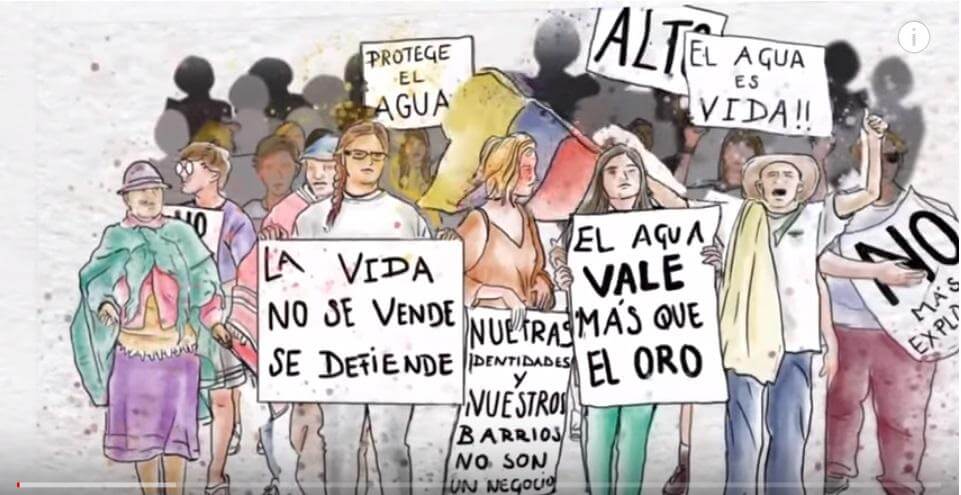 PROTEGE
EL
AGUA
ALTO
EL AGUA
ES
VIDA!!
NO
LA VIDA
NO SE VENDE
SE DEFIENDE
NUETRAS
IDENTIDADES
Y
NUESTROS
BARRIOS
NO SON
UN NEGOCIO
EL AGUA
VALE
MÁS QUE
EL ORO
NO
MÁS
EXPL